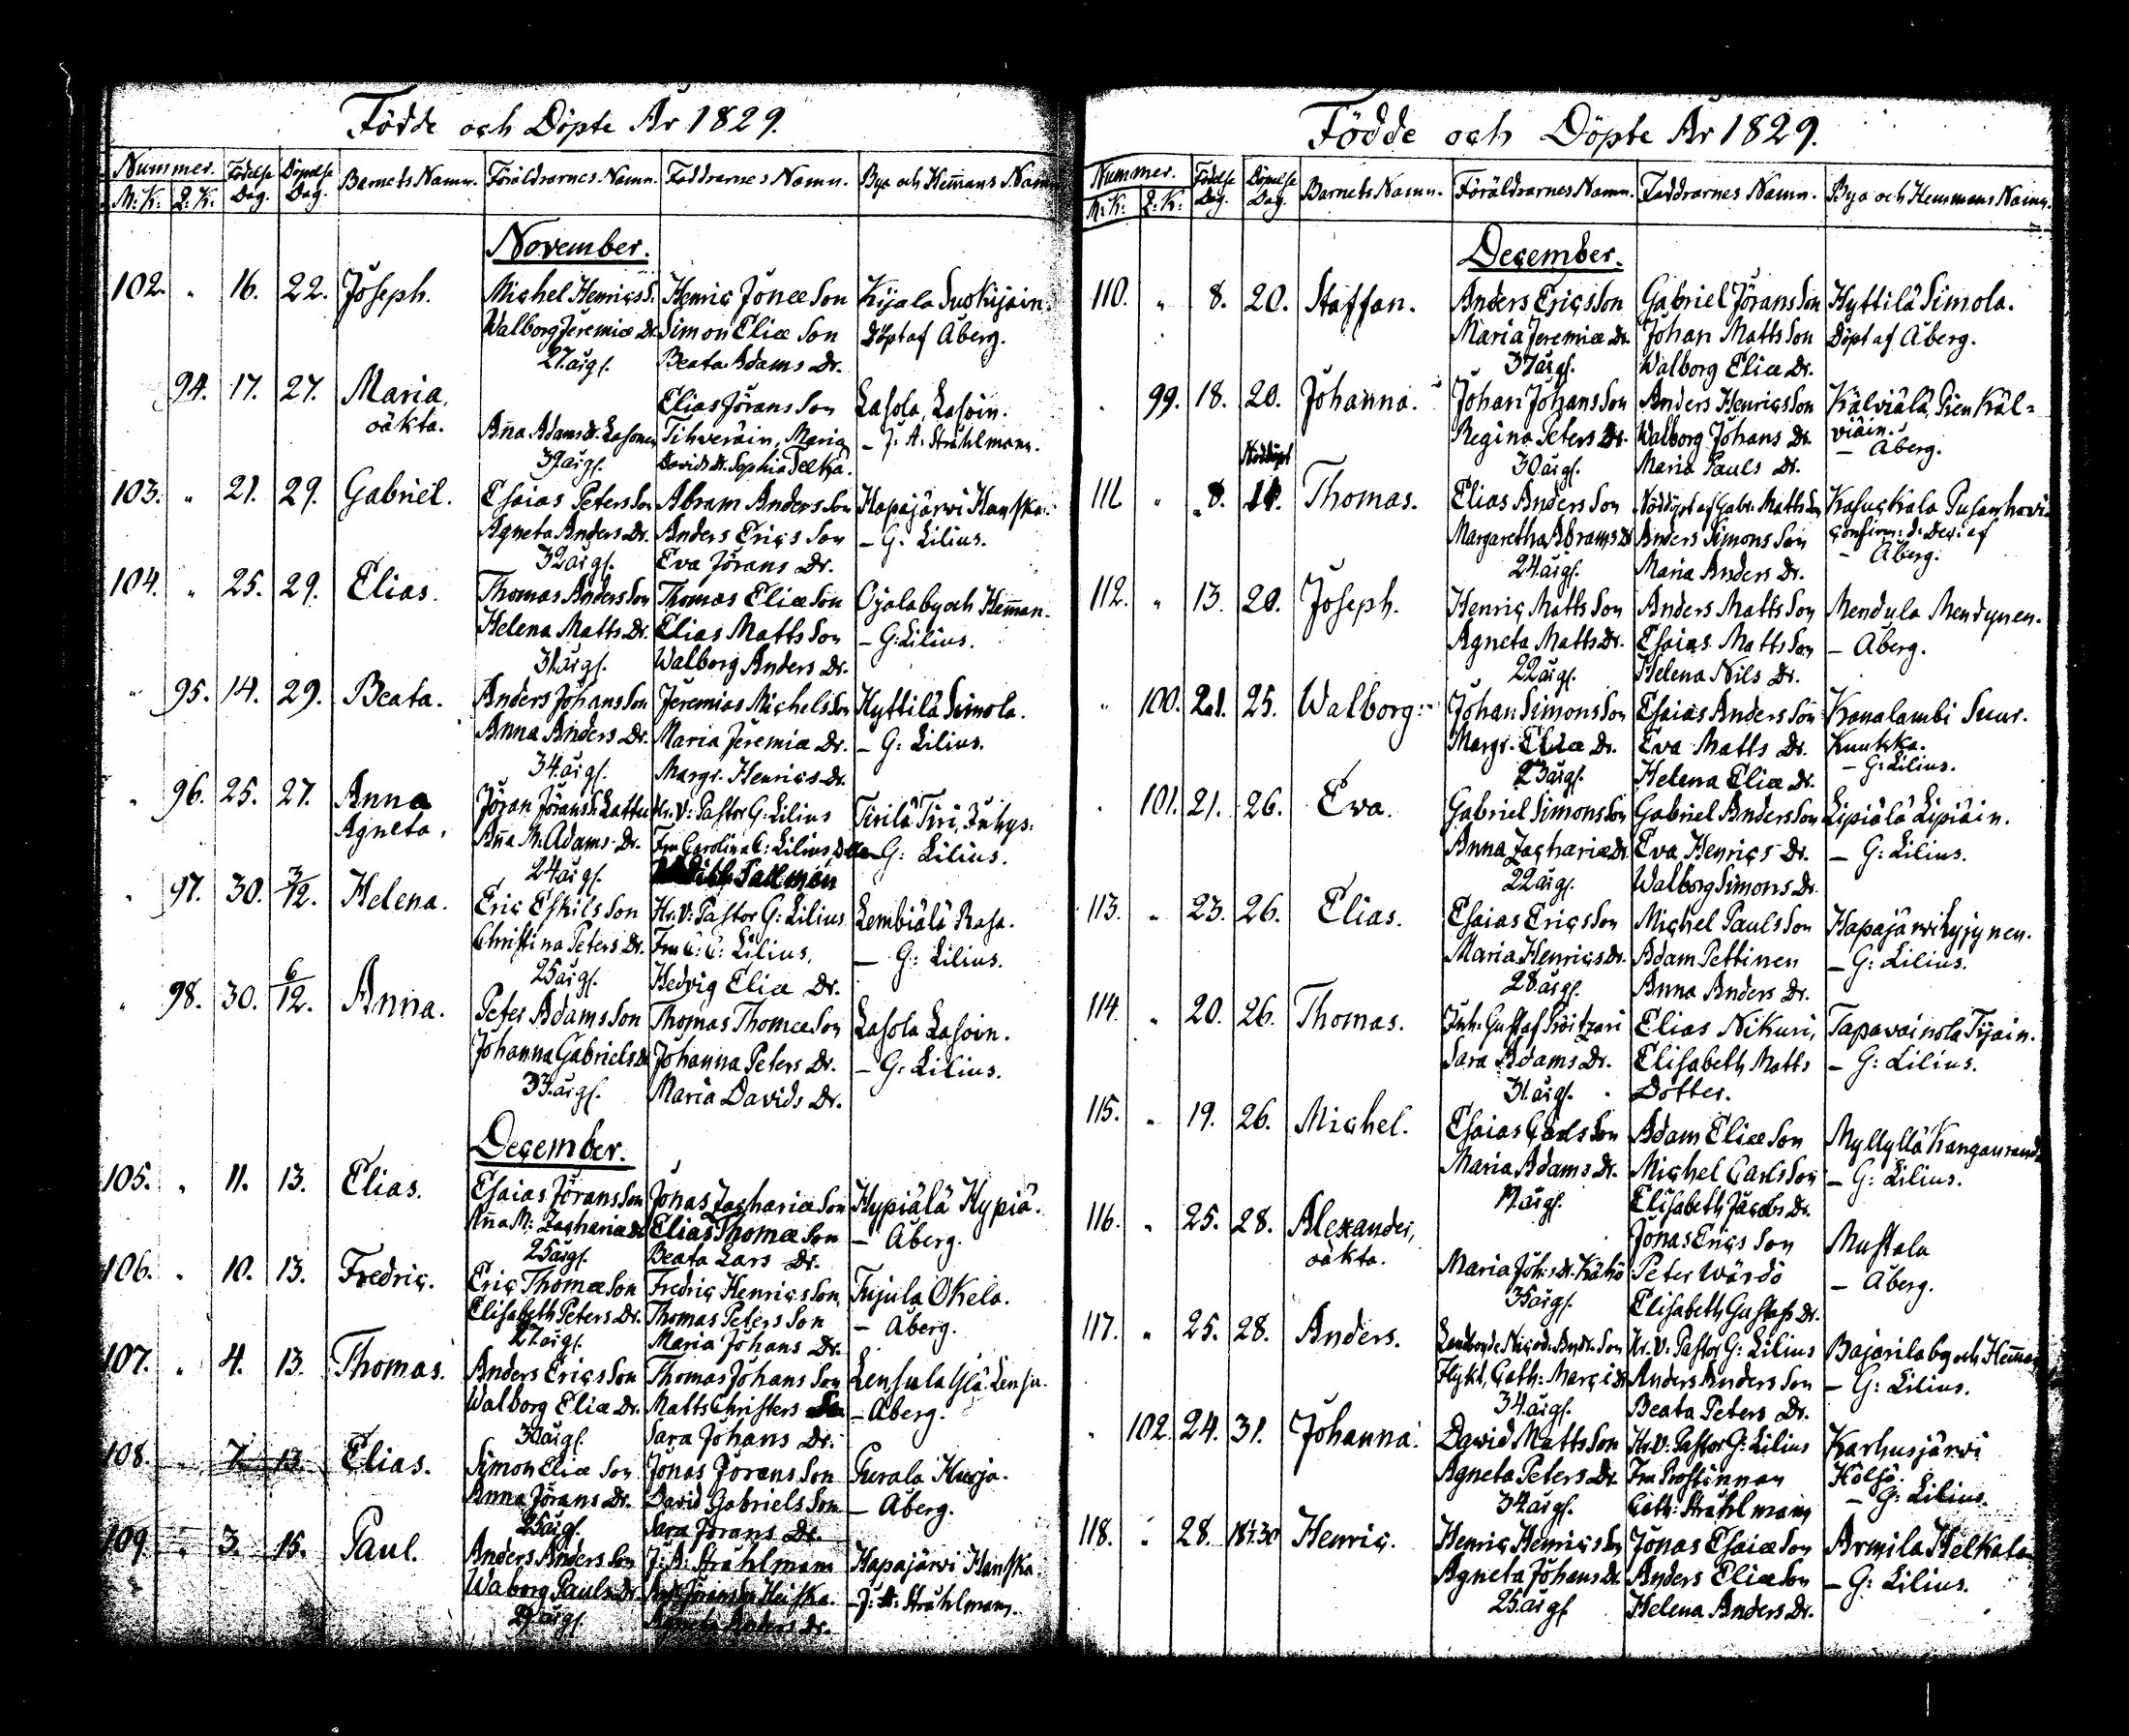 Födde och Döpte År 1829.
Nummer. Födelse Döpelse Barnets Namn. Föräldrarnes Namn. Faddrarnes Namn. Bya och Hem̄ans Namn
M: K: Q: K. Dag. Dag.
November.
102. " 16. 22. Joseph. Michel Henrics S. Henric Jonæ Son Kijala Suokijain.
Walborg Jeremiæ Dr. Simon Eliæ Son Döpt af Åberg.
27. årgl. Beata Adams Dr.
94. 17. 27. Maria, Elias Jörans Son Lasola Lasoin.
oäkta. An̄a Adams Dr. Lasonen Tihveräin, Maria – J: A: Stråhlmann.
39 årgl. Davids Dr. Sophia Telkä.
103. " 21. 29. Gabriel. Esaias Peters Son Abram Anders Son Hapajärvi Hanska.
Agneta Anders Dr. Anders Erics Son – G: Lilius.
32 årgl. Eva Jörans Dr.
104. " 25. 29. Elias. Thomas Anders Son Thomas Eliæ Son Ojalaby och Hem̄an.
Helena Matts Dr. Elias Matts Son – G: Lilius.
31. årgl. Walborg Anders Dr.
" 95. 14. 29. Beata. Anders Johans Son Jeremias Michels Son Hyttilä Simola.
Anna Anders Dr. Maria Jeremiæ Dr. – G: Lilius.
34. årgl. Margr. Henrics Dr.
" 96. 25. 27. Anna Jöran Jörans S. Lattu Hr. V: Pastor G: Lilius Tirilä Tiri, Inhys.
Agneta. An̄a M: Adams Dr. Fru Carolina C: Lilius, – G: Lilius.
24 årgl. Tallmon
" 97. 30. 3/12. Helena. Eric Eskils Son Hr. V: Pastor G: Lilius Lembiälä Rasa.
Christina Peters Dr. Fru C: C: Lilius, – G: Lilius.
25 årgl. Hedvig Eliæ Dr.
" 98. 30. 6/12. Anna. Peter Adams Son Thomas Thomæ Son Lasola Lasoin.
Johanna Gabriels Dr Johanna Peters Dr. – G: Lilius.
33. årgl. Maria Davids Dr.
December.
105. " 11. 13. Elias. Esaias Jörans Son Jonas Zachariæ Son Hypiälä Hypiä.
An̄a M: Zachariæ Dr Elias Thomæ Son – Åberg.
25 årgl. Beata Lars Dr.
106. " 10. 13. Fredric. Eric Thomæ Son Fredric Henrics Son, Tujula Okela.
Elisabeth Peters Dr. Thomas Peters Son – Åberg.
27. årgl. Maria Johans Dr.
107. " 4. 13. Thomas. Anders Erics Son Thomas Johans Son Lensula Ylä Lensu.
Walborg Eliæ Dr. Matts Christers Son – Åberg.
30 årgl. Sara Johans Dr.
108. " 7. 13. Elias. Simon Eliæ Son Jonas Jörans Son Purala Hurja.
Anna Jörans Dr. David Gabriels Son – Åberg.
25 årgl. Sara Jörans Dr.
109. " 3. 15. Paul. Anders Anders Son J: A: Stråhlmann Hapajärvi Hanska.
Waborg Pauls Dr. – J: A: Stråhlmann.
29 årgl. Agneta Anders Dr.
Födde och Döpte År 1829.
Nummer. Födelse Döpelse Barnets Namn. Föräldrarnes Namn. Faddrarnes Namn. Bya och Hemmans Namn.
M: K: Q: K: Dag. Dag.
December.
110. " 8. 20. Staffan. Anders Erics Son Gabriel Jörans Son Hyttilä Simola.
Maria Jeremiæ Dr. Johan Matts Son Döpt af Åberg.
37 årgl. Walborg Eliæ Dr.
" 99. 18. 20. Johanna. Johan Johans Son Anders Henrics Son Kälviälä, Pien Käl-
Regina Peters Dr. Walborg Johans Dr. viäin.
30 årgl. Maria Pauls Dr. – Åberg.
Nöddöpt
111. " 8. 11. Thomas. Elias Anders Son Nöddöpt af Gabr. Matts Son
Margaretha Abrams Dr Anders Simons Son confirm: d: Dec: af
24 årgl. Maria Anders Dr. – Åberg.
112. " 13. 20. Joseph. Henric Matts Son Anders Matts Son Mendula Mendynen.
Agneta Matts Dr. Esaias Matts Son – Åberg.
22 årgl. Helena Nils Dr.
" 100. 21. 25. Walborg: Johan Simons Son Esaias Anders Son Kanalambi Suur.
Margr. Eliæ Dr. Eva Matts Dr. Kuukka.
23 årgl. Helena Eliæ Dr. – G: Lilius.
" 101. 21. 26. Eva. Gabriel Simons Son Gabriel Anders Son Lipiälä Lipiäin.
Anna Zachariæ Dr Eva Henrics Dr. – G: Lilius.
22 årgl. Walborg Simons Dr.
113. " 23. 26. Elias. Esaias Erics Son Michel Pauls Son Hapajärwi Lyjynen.
Maria Henrics Dr. Adam Pettinen – G: Lilius.
28 årgl. Anna Anders Dr.
114. " 20. 26. Thomas. Inh: Gustaf Elias Nikuri, Tapavainola Tijain.
Sara Adams Dr. Elisabeth Matts – G: Lilius.
31 årgl. Dotter.
115. " 19. 26. Michel. Esaias Carls Son Adam Eliæ Son Myllylä Kangasranda
Maria Adams Dr. Michel Carls Son – G: Lilius.
19. årgl. Elisabeth Jacobs Dr.
116. " 25. 28. Alexander, Jonas Erics Son Mustola
oäkta. Maria Joh:s Dr. Kähö Peter Wärdö – Åberg.
35 årgl. Elisabeth Gustafs Dr.
117. " 25. 28. Anders. Landbonde Nicod. Andr. Son Hr. V: Pastor G: Lilius Bajarilaby och Hem̄an
Flykt, Cath: Marci Dr Anders Anders Son – G: Lilius.
34. årgl. Beata Peters Dr.
" 102. 24. 31. Johanna. David Matts Son Hr. V: Pastor G: Lilius Karhusjärvi
Agneta Peters Dr. Fru Prostinnan Hölsö.
34 årgl. Cath: Stråhlmann – G: Lilius.
118. " 28. Henric. Henric Henrics Son Jonas Esaiæ Son Armila Helkala
Agneta Johans Dr. Anders Eliæ Son – G: Lilius.
25. årgl. Helena Anders Dr.